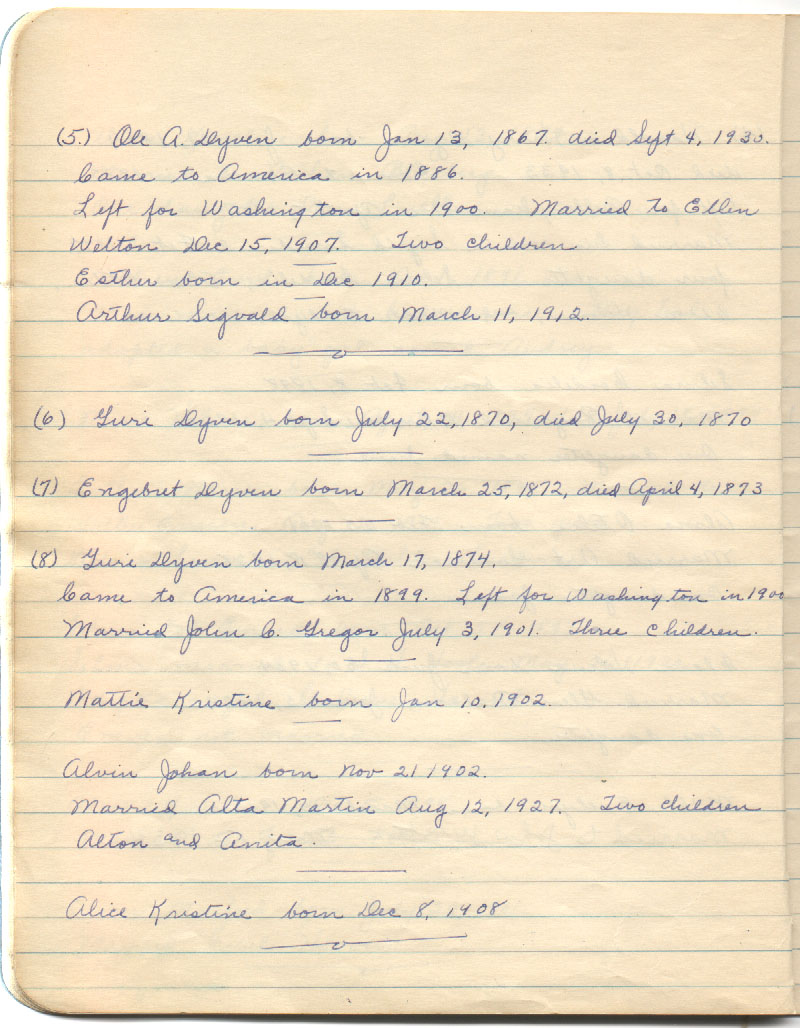 (5.) Ole A. Dyven born Jan 13, 1867. died Sept 4, 1930.
Came to America in 1886.
Left for Washington in 1900. Married to Ellen
Welton Dec 15, 1907. Two children
Esther born in Dec 1910.
Arthur Sigvald born March 11, 1912.
(6) Guri Dyven born July 22, 1870, died July 30, 1870
(7) Engebret Dyven born March 25, 1872, died April 4, 1873
(8) Guri Dyven born March 17, 1874.
Came to America in 1899. Left for Washington in 1900
Married John C. Gregor July 3, 1901. Three children.
Mattie Kristine born Jan 10, 1902.
Alvin Johan born Nov 21 1902.
Married Alta Martin Aug 12, 1927. Two children
Alton and Anita.
Alice Kristine born Dec 8, 1908